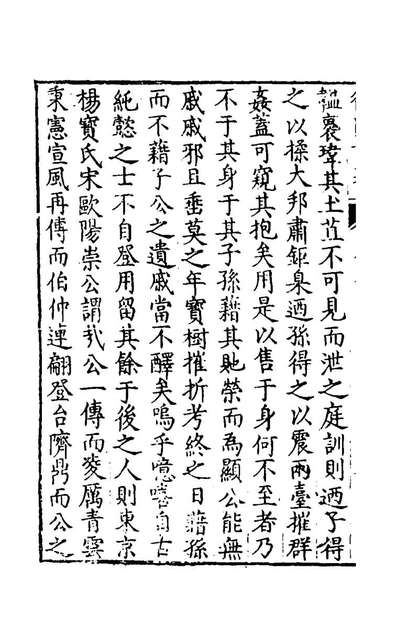 韞褱瑋其土苴不可見而泄之庭訓則迺子得
之以操大邦肅鉅臬迺孫得之以震兩臺摧群
姦蓋可窺其抱矣用是以售于身何不至者乃
不于其身于其子孫藉其貤榮而為顯公能無
戚戚邪且垂莫之年寶樹摧折考終之日藉孫
而不藉子公之遺戚當不釋矣嗚乎噫嘻自古
純懿之士不自登用留其餘于後之人則東京
楊寶氏宋歐陽崇公謂我公一傳而凌厲青雲
秉憲宣風再傳而伯仲連翩登台隮鼎而公之